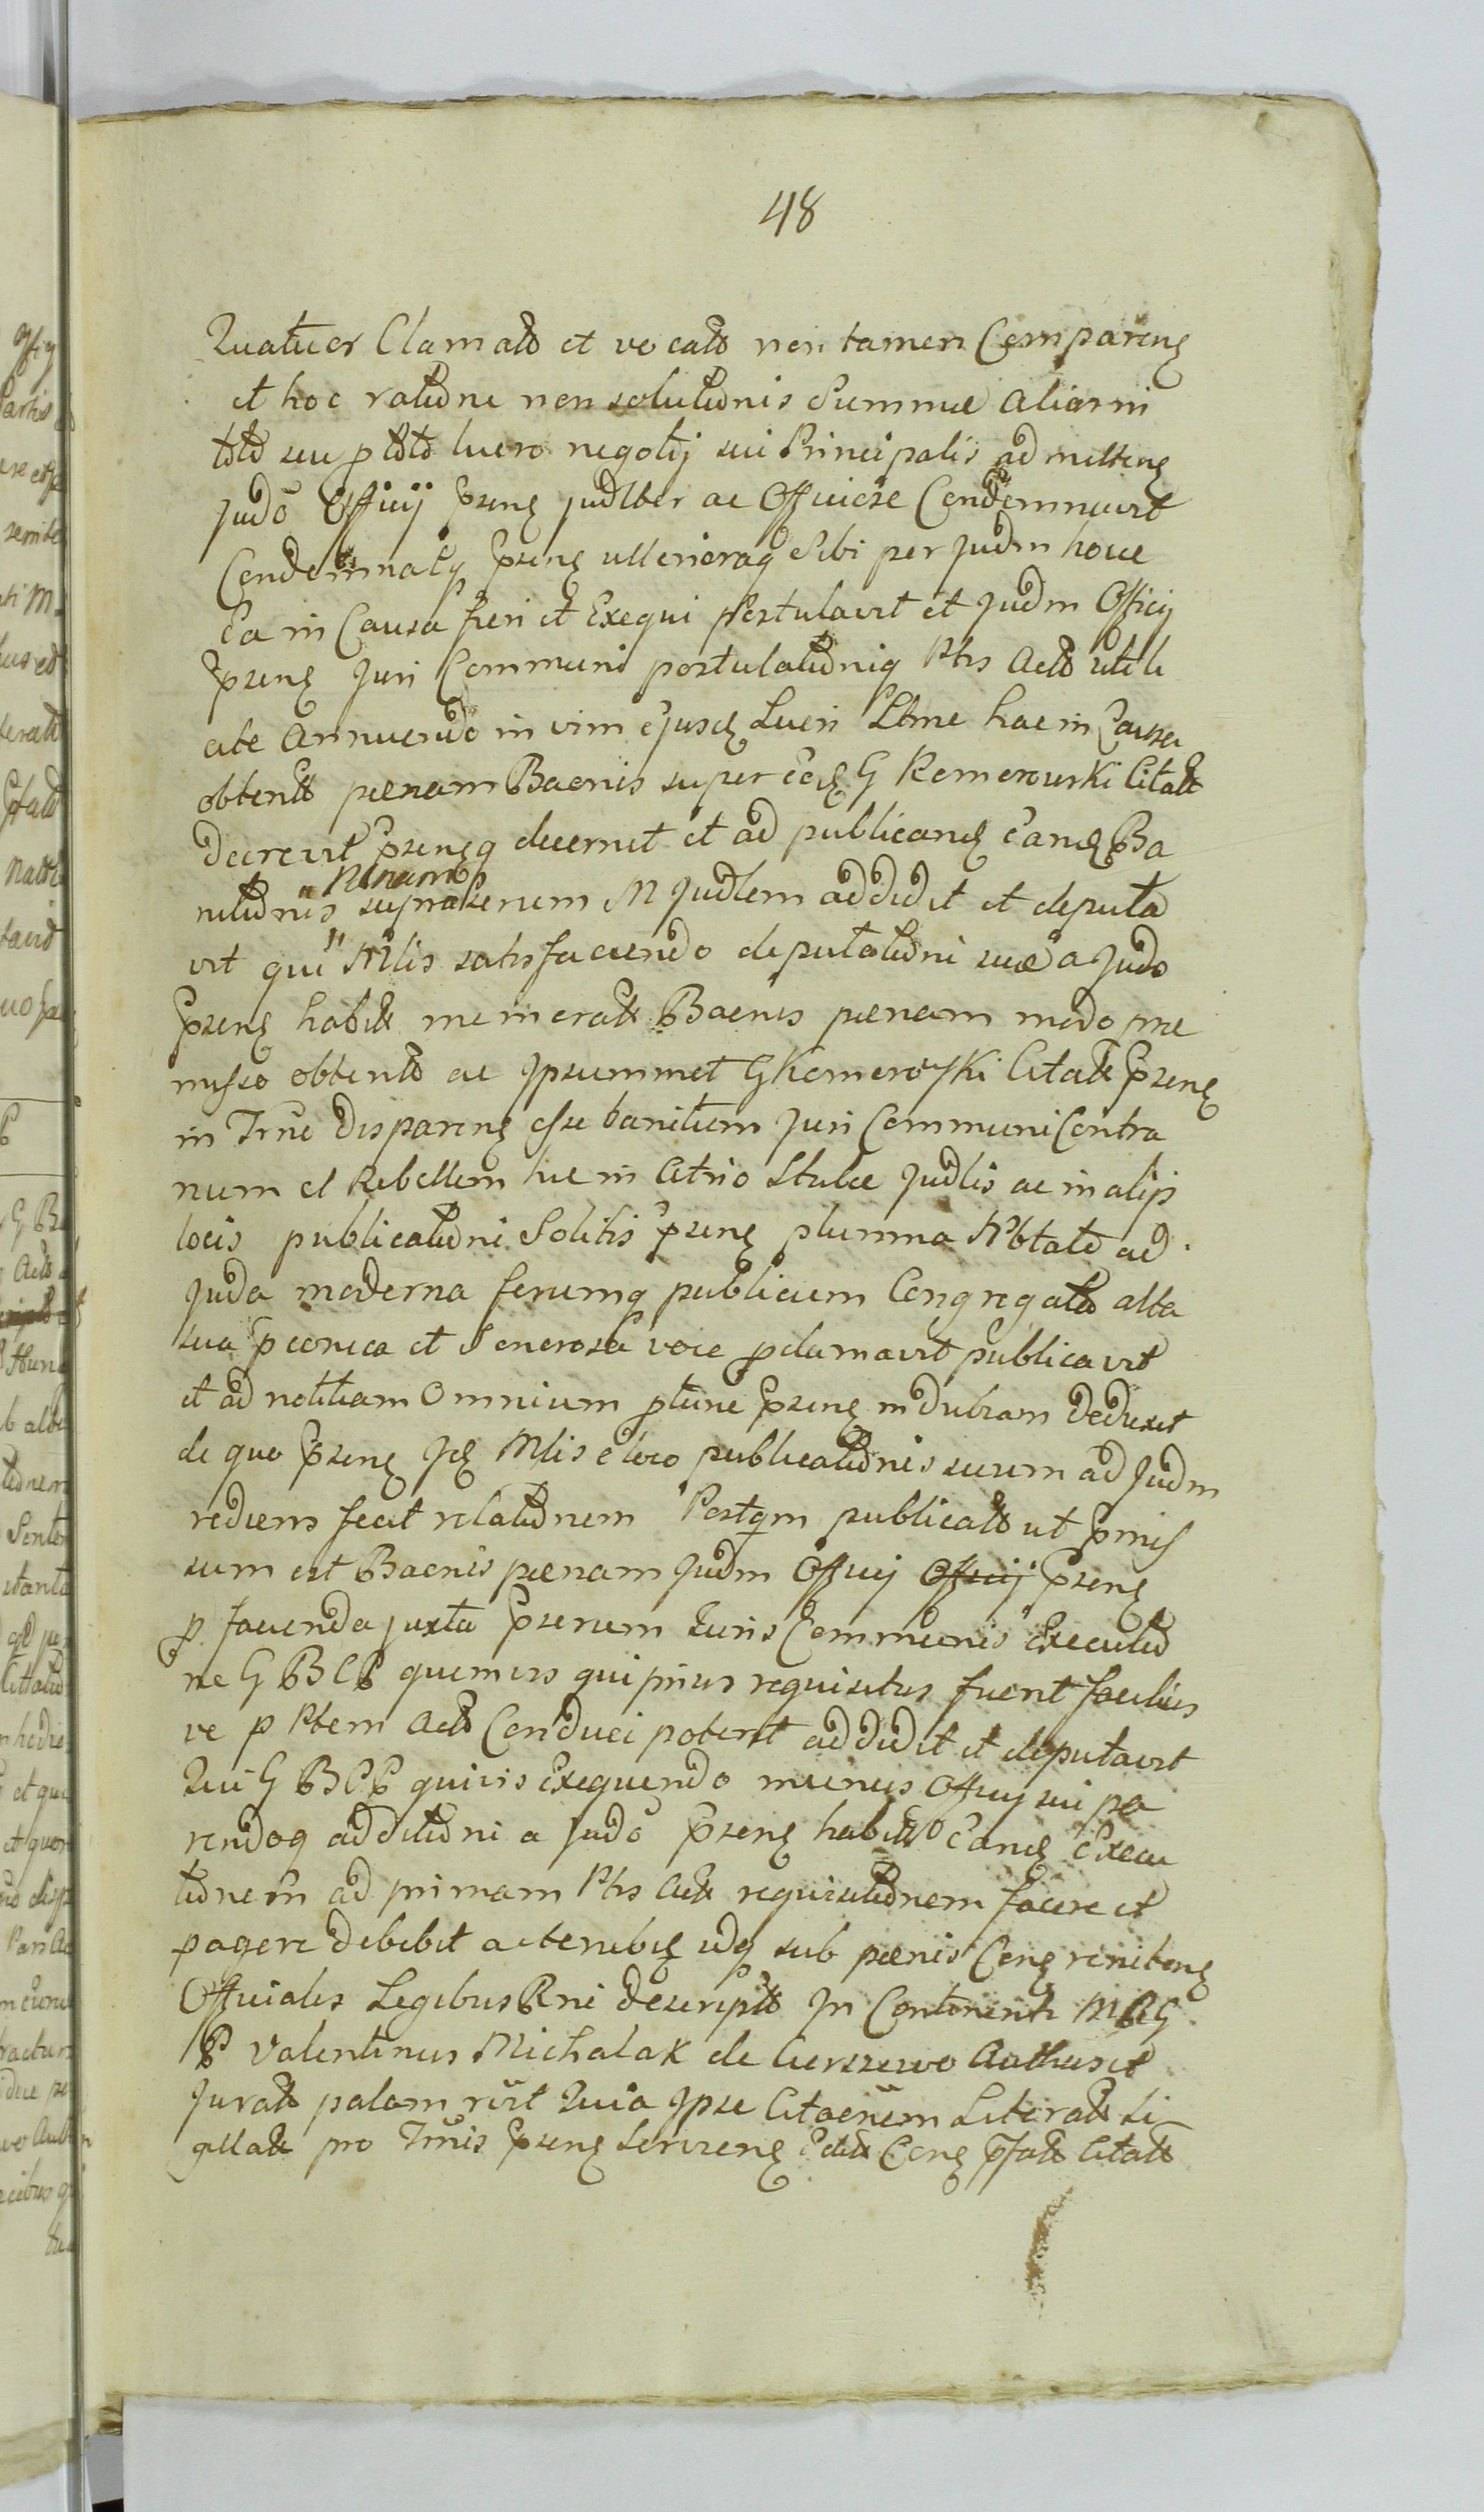 48
Quatuor Clamato et vocato non tamen Comparenę
et hoc ratione non solutionis Summae Aliarm
toto seu p toto lucro negotij sui Principalis admittenę
Judō Officij pnsenę judlter ac Officiose Condemnavit
Condemnatq pnsenę ulterioraq Sibi per Judm hocce
Ea in Causa fieri et Exequi Postulavit et Judm Officij
pnsenę Juri Communi postulationiq Ptis Acto
Annuendo in vim ejusdę Lucri Ltme hac in Causa
obtento paenam Baenis super eodę G Komorowski Citato
Decrevit pnsenęq decernit et ad publicandę eandę Ba
nitionis Mnrum supraserium M Judlem addidit et deputa
vit qui Mlis satisfaciendo deputationi suae a Judo
pnsenę habitae memorato Baenis paenam modo prae
misso obtento ac Ipsummet G Komorowski Citato pnsenę
in Trno Disparenę esse banitum Juri Communi Contra
rium et Rebellem hic in Atrio Stubae Judlis ac in alijs
locis publicationi Solitis pnsenę plurima Nbtate ad
Juda moderna forumq publicum Congregato alta
sua pconica et Senorosa voce pclamavit publicavit
et ad notitiam Omnium ptunc pnsenę indubiam Deduxit
de quo pnsenę Idę Mlis e loco publicationis suum ad Judm
rediens fecit relationem Postqm publicato ut pmis
sum est Baenis paenam Judm Officij Officij pnsenę
p facienda juxta pnsenum Juris Communis Executio
ne G B C P quemvis qui prius requisitus fuerit facilius
ve p Ptem Acto Conduci poterit addidit et deputavit
Qui G B C P quivis Exequendo munus Officij sui pa
rendoq additioni a Judō pnsenę habitae Eandę Execu
tionem ad primam Ptis Acto requisitionem facere et
pagere debebit attenebitę idq sub paenis Cenę renitenę
Officialis Legibus Rni descripto In Continenti M R G
P Valentinus Michalak de Cierszewo Authusit
Jurato palam rūt Quia Ipse Citaoēnem Literato Si
gillato pro Tmis pnsenę Servienę Edito Cenę Pfato Citato